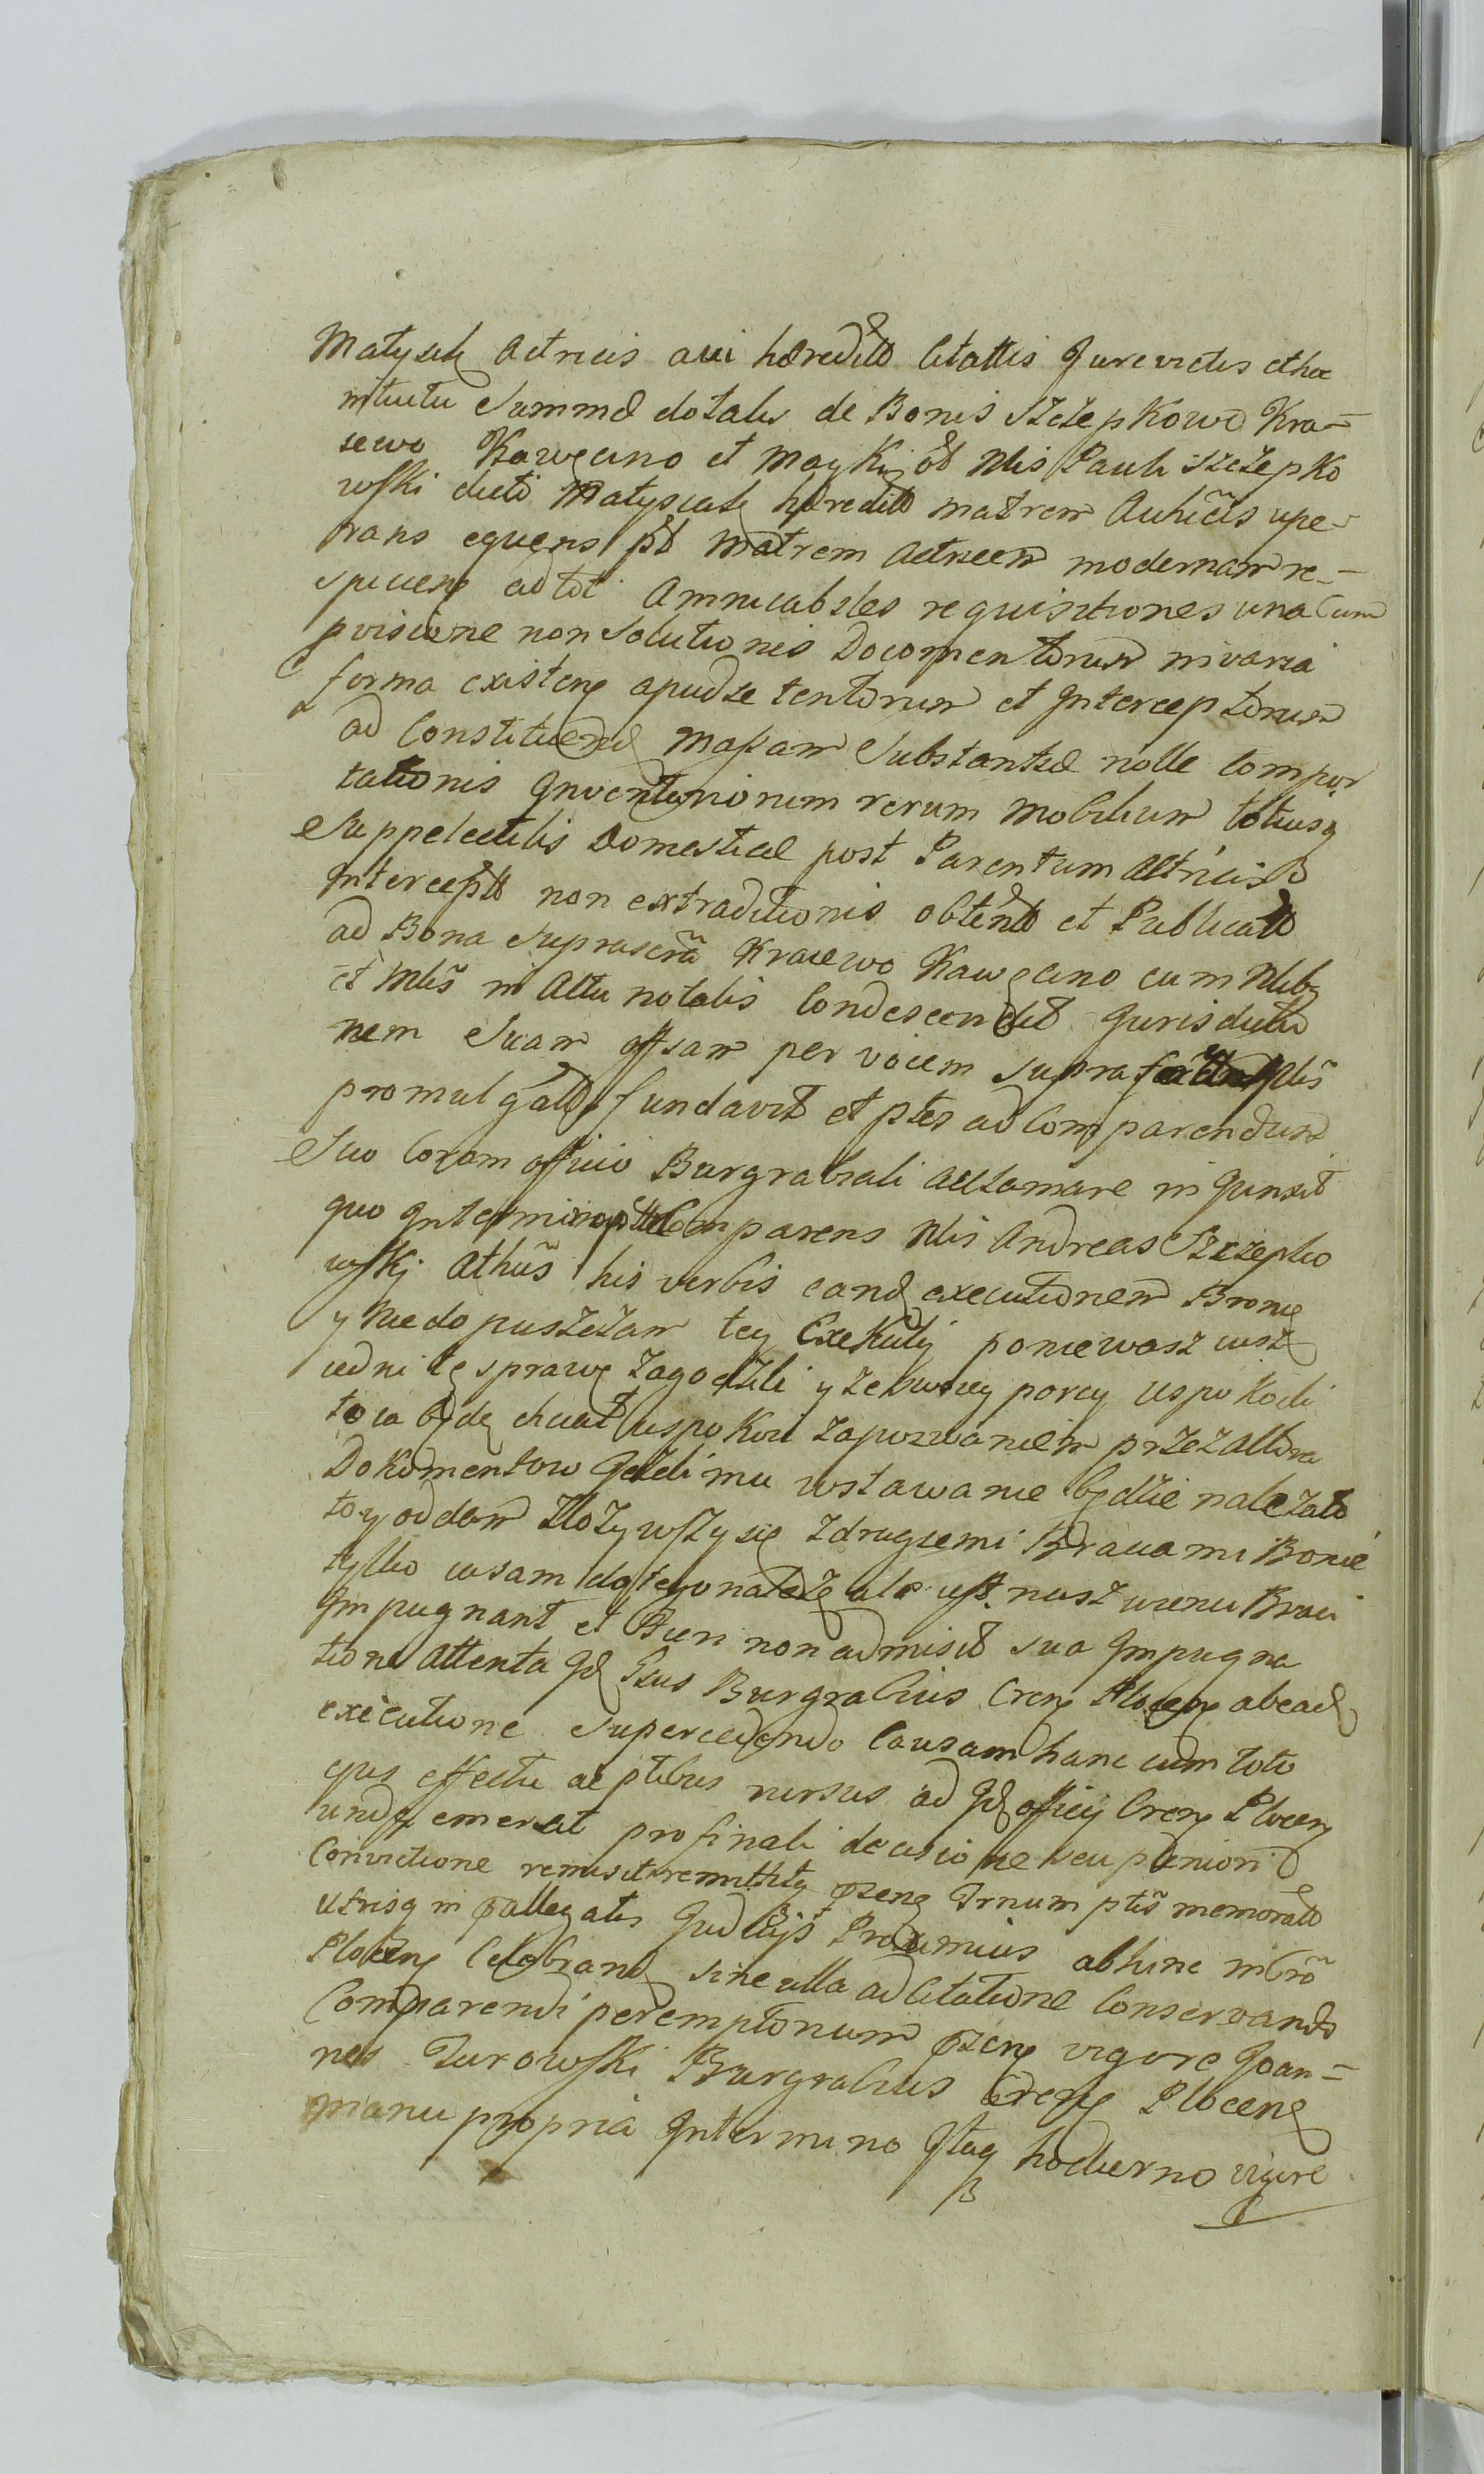 Matysek Actricis avi hæredibs Citattis Jurevictis et hoc
intuitu Summæ dotalis de Bonis Szczepkowo Kra-
sewo Kawęcino et Mayki ob Nlis Pauli Szczepko
wski dicti Matysiak hæredibs matrem
rans equens pt Matrem Actricem modernam re-
spicien ad tot Amicabiles requisitiones una Cum
pvisione non Solutionis Documentorum in varia
forma existen apud se tentorum et Interceptorum
ad Constituend Massam Substantiæ nolle Compor
tationis Inventariorum rerum Mobilium totiusq
Suppelectilis Domesticæ post Parentum Actricis
Intercepts non extraditionis obtents et Publicats
ad Bona Suprascrta Kraiewo Kawęcino cum Nlibq
et Mlis in Actu notatis Condescendit Jurisdictio
nem Suam offsam per vocem supra
promulgats fundavit et ptes ad Comparendum
Suo Coram officio Burgrabiali acclamare in Junxit
quo Intermino Comparens Nlis Andreas Szczepko
wski Athus his verbis eand executionem Bronię
y Niedopuszczam tey Exekucij poniewasz iusz
iedni tę sprawę zagodzili y ze swoiey porcy uspokoili
to ia będę chciał uspokoic zapozwaniem przez Aktora
Dokomentow Jezeli mu wstawanie będzie nalezało
to y oddam złozywszy się z drugiemi Bracami Bo nie
tylko ia sam do tego należę ale iest nasz wiency Braci
Impugnant et Fieri non admisit sua Impugna
tione attenta Id Gsus Burgrabius Cren Plocen ab ead
executione Supercedendo Causam hanc cum toto
eius effectu ac ptibus rursus ad Id officij Cren Plocen
undq emerat pro finali decisione seu
Convictione remisit remittitq Trnum ptis memorats
utrisq in pallegatis Judicijs Proximius abhinc in Cro
Plocen Celebrand sine ulla ad Citatione Conservands
Comparendi peremptorium pzen vigore Joan=
nes Turowski Burgrabius Cren Plocen
manu propria Intermino Itaq hodierno vigore